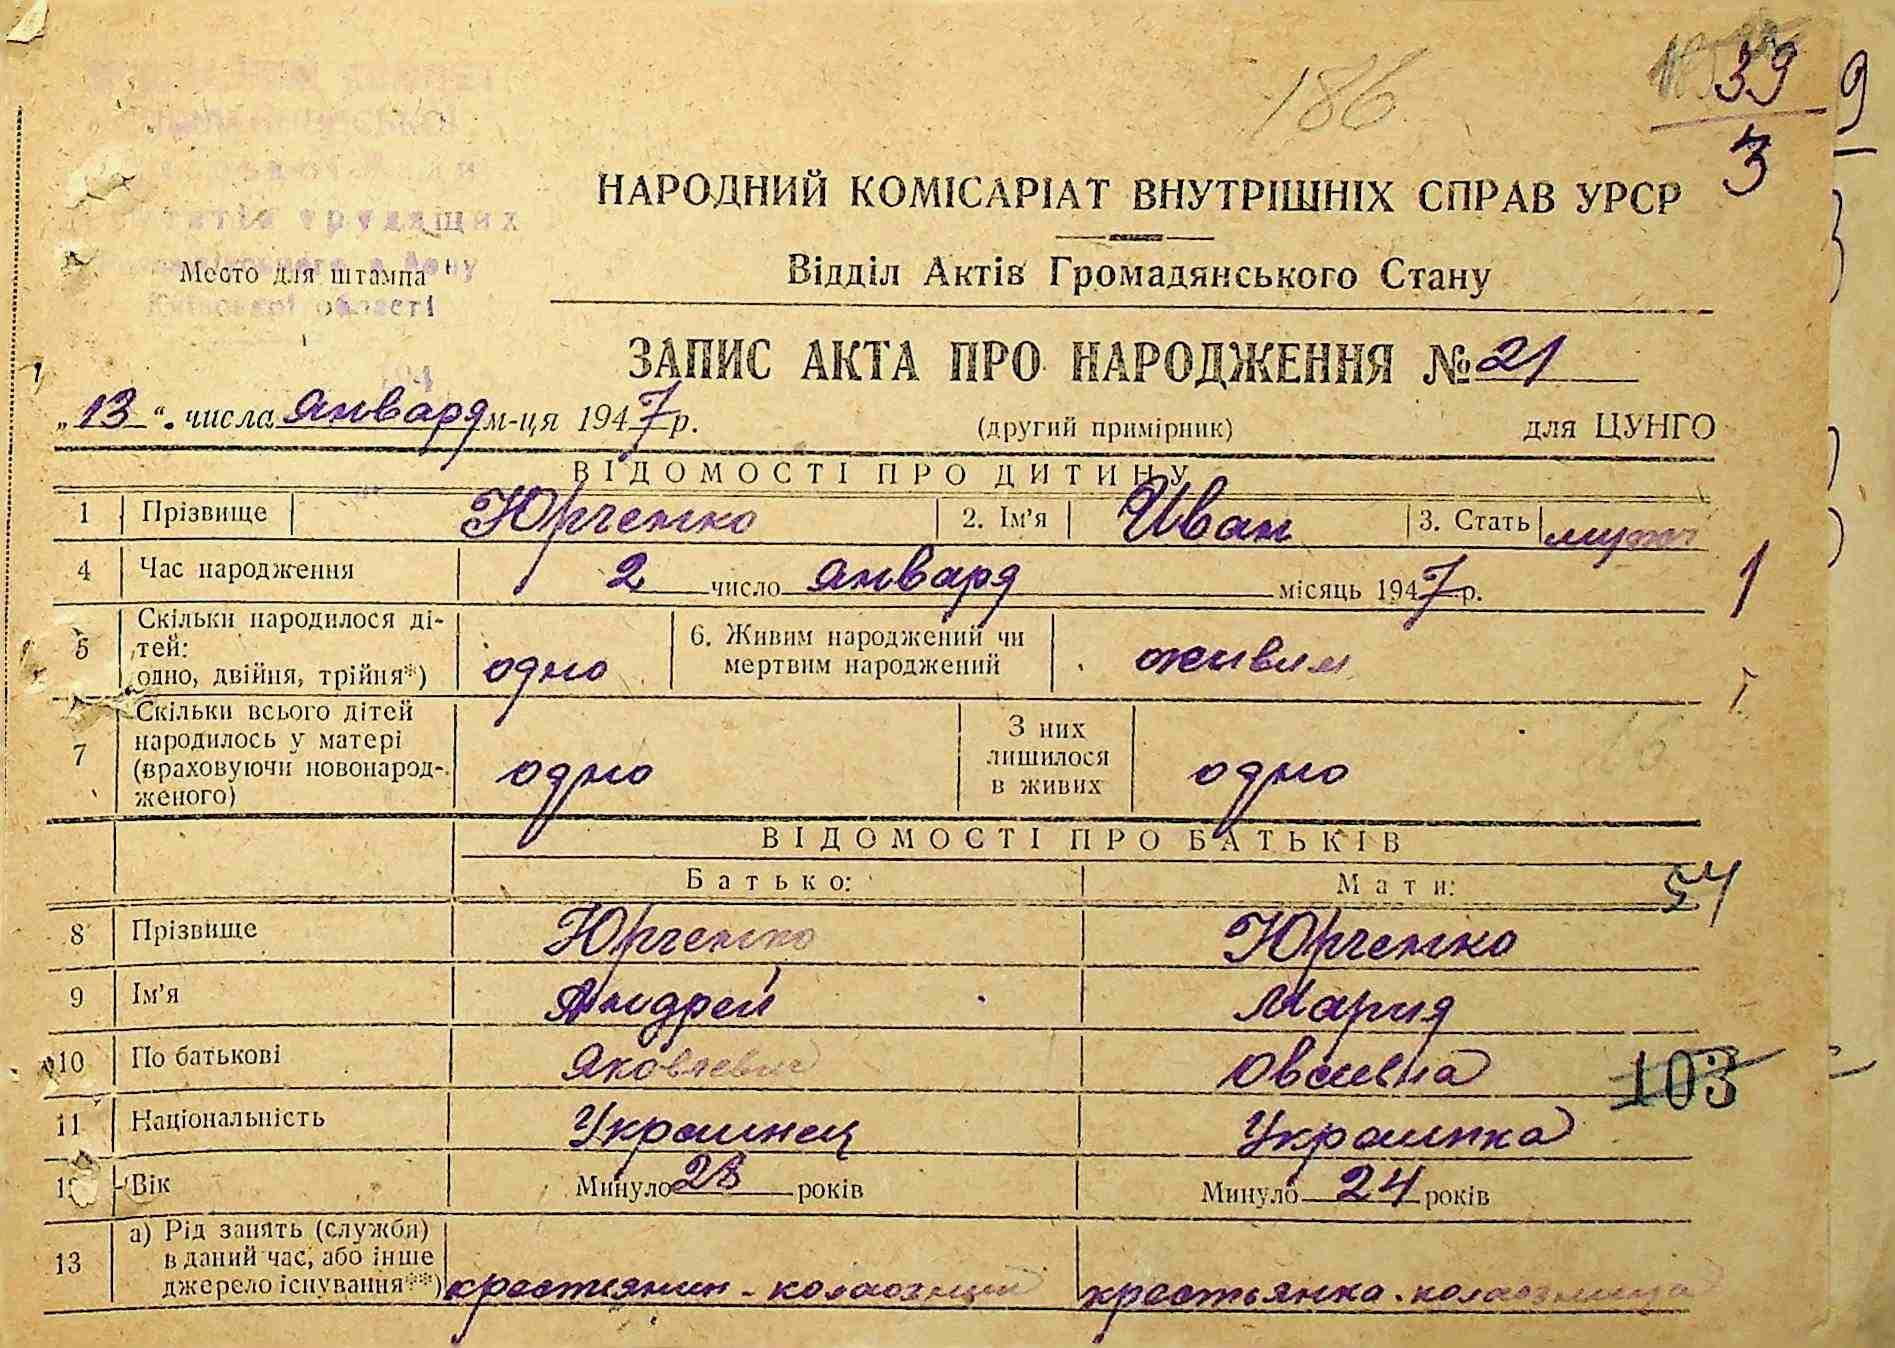 186
39
3
9
НАРОДНИЙ КОМІСАРІАТ ВНУТРІШНІХ СПРАВ УРСР
трудящих
Место для штампа
Відділ Актів Громадянського Стану
Київської області
194
ЗАПИС АКТА ПРО НАРОДЖЕННЯ № 21
„13“ числа января м-ця 1947 р. (другий примірник) для ЦУНГО
ВІДОМОСТІ ПРО ДИТИНУ
1 Прізвище Юрченко 2. Ім'я Иван 3. Стать муж
4 Час народження 2 число января місяць 1947 р.
1
5 Скільки народилося ді-
тей:
одно, двійня, трійня*) одно 6. Живим народжений чи
мертвим народжений живым
7 Скільки всього дітей
народилось у матері
(враховуючи новонарод-
женого) одно З них
лишилося
в живих одно
16
ВІДОМОСТІ ПРО БАТЬКІВ
Батько: Мати:
54
8 Прізвище Юрченко Юрченко
9 Ім'я Андрей Мария
10 По батькові Яковлевич Овсиевна
103
11 Національність Украинец Украинка
12 Вік Минуло 28 років Минуло 24 років
13 а) Рід занять (служби)
в даний час, або інше
джерело існування**) крестиянин-колхозник крестьянка-колхозница